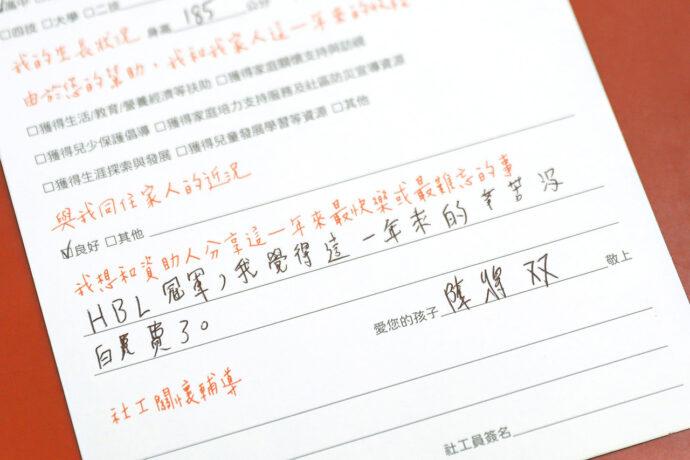 □四技 □大學 □二技
我的生長狀況 身高 185 公分
由於您的幫助，我和我家人這一年來的
□獲得生活/教育/營養經濟等扶助 □獲得家庭關懷支持與訪視
□獲得兒少保護倡導 □獲得家庭培力支持服務及社區防災宣導資源
□獲得生涯探索與發展 □獲得兒童發展學習等資源 □其他
與我同住家人的近況
☑良好 □其他
我想和資助人分享這一年來最快樂或最難忘的事
HBL 冠軍，我覺得這一年來的辛苦沒
白費了。
愛您的孩子 陳將双 敬上
社工關懷輔導
社工員簽名